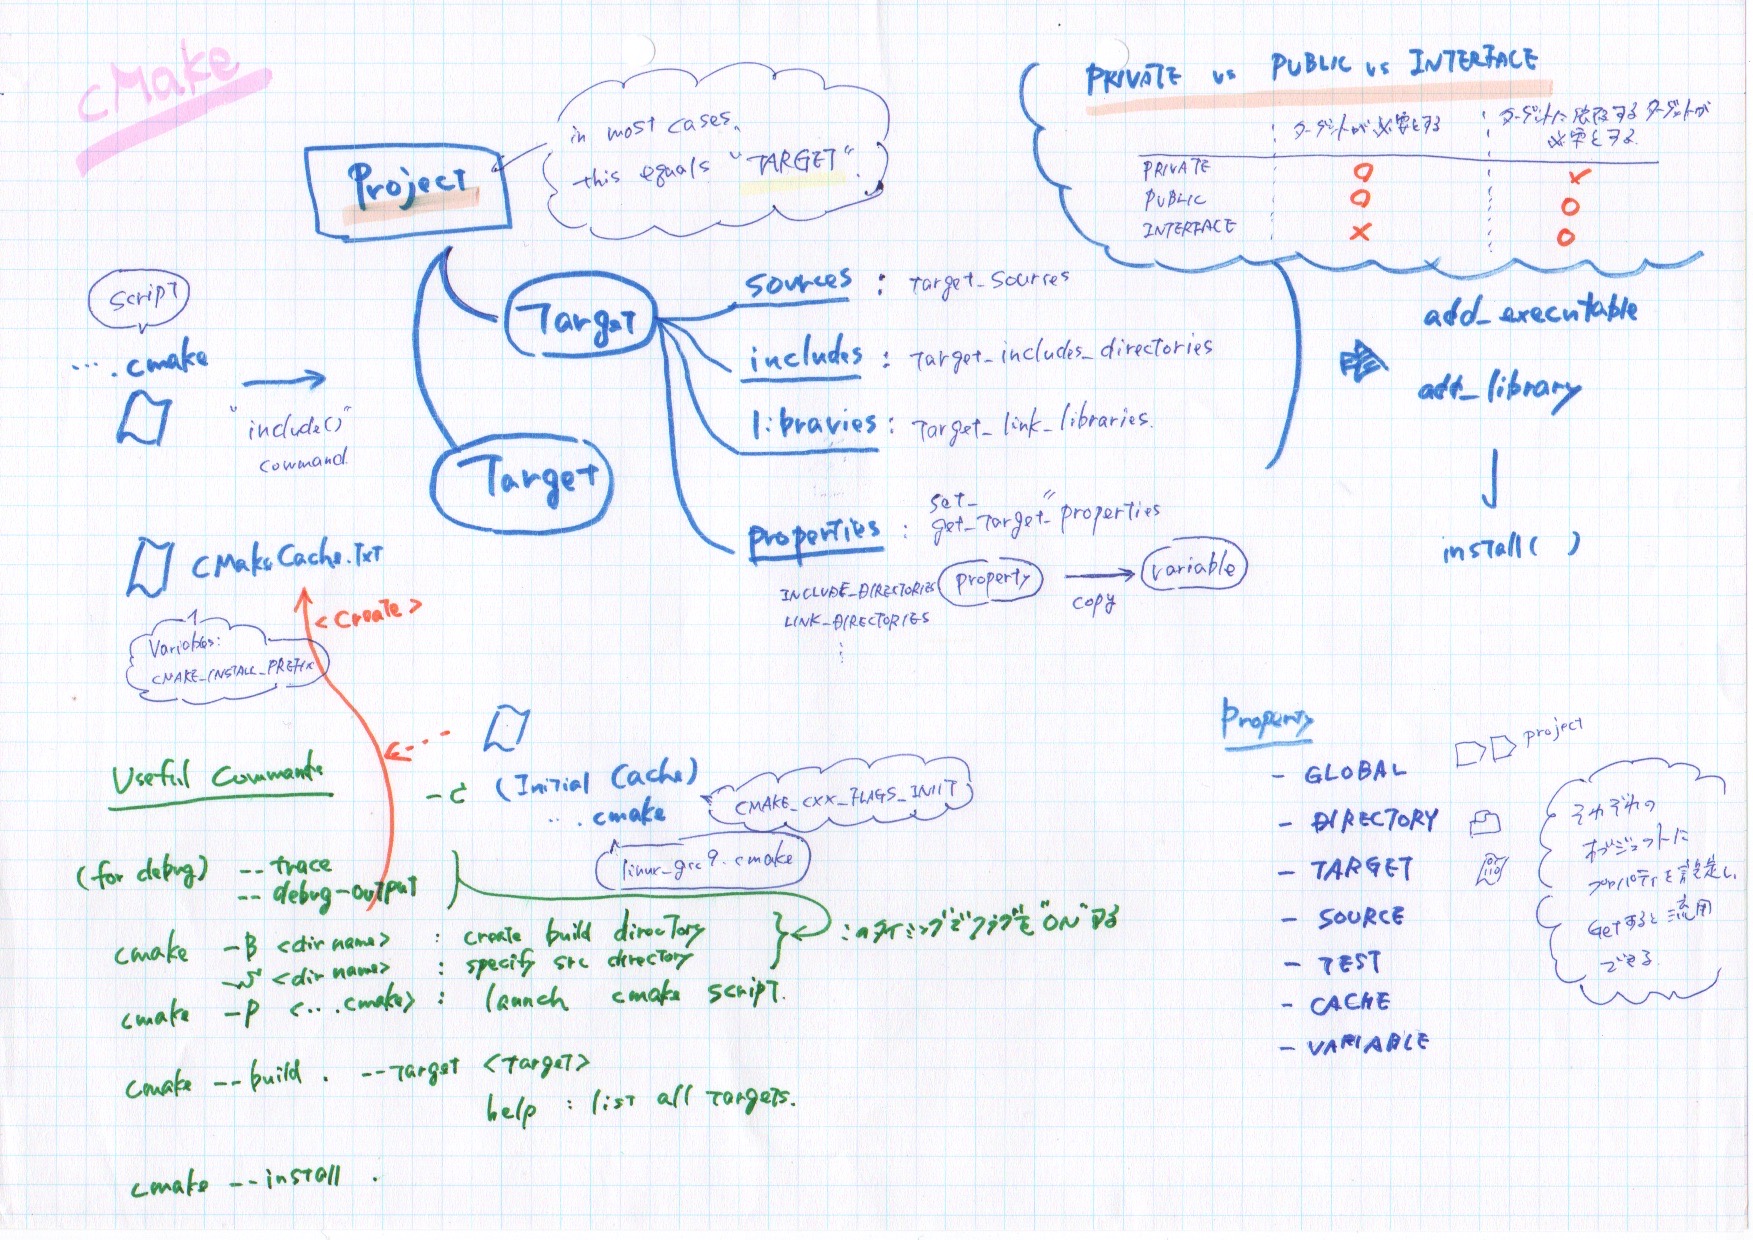 cMake
Project
in most cases,
this equals "TARGET".
PRIVATE vs PUBLIC vs INTERFACE
ターゲットが必要とする
ターゲットに依存するターゲットが
必要とする
PRIVATE O X
PUBLIC O O
INTERFACE X O
script
... .cmake
"include()"
command
Target
Target
sources : Target_sources
includes : Target_includes_directories
libraries : Target_link_libraries.
properties : set_ "
get_Target_properties
INCLUDE_DIRECTORIES
LINK_DIRECTORIES
property
copy
variable
add_executable
add_library
install( )
CMakeCache.Txt
<create>
Variables:
CMAKE_INSTALL_PREFIX
-C (Initial Cache)
... .cmake
CMAKE_CXX_FLAGS_INIIT
linux_gcc9.cmake
Useful Commands
(for debug) --trace
--debug-output
cmake -B <dir name> : create build directory
-S <dir name> : specify src directory
このタイミングでフラグを"ON"する
cmake -P <... .cmake> : launch cmake script.
cmake --build . --Target <Target>
help : list all targets.
cmake --install .
Property
- GLOBAL
project
- DIRECTORY
- TARGET
- SOURCE
- TEST
- CACHE
- VARIABLE
それぞれの
オブジェクトに
プロパティを設定し、
Getすると流用
できる